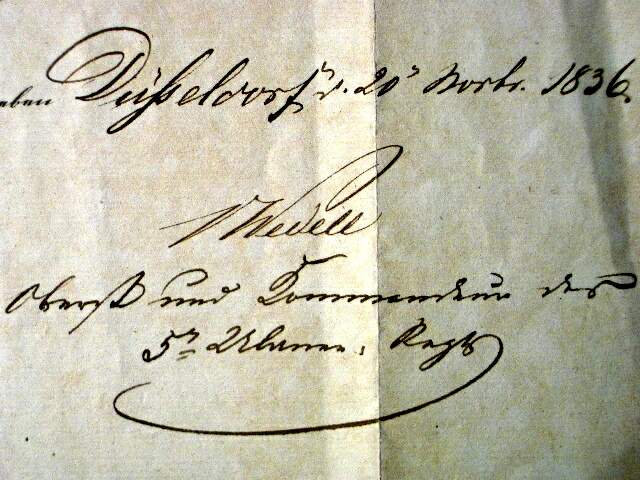 eben Düsseldorf d. 20t Novbr. 1836.
v Wedell
Oberst und Kommandeur des
5t Ulanen, Regts